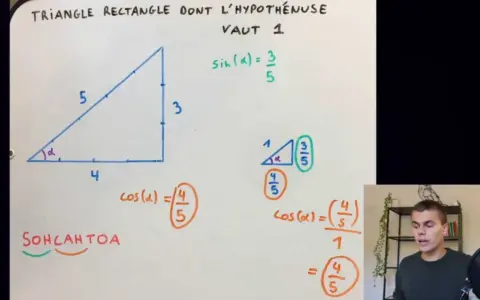 TRIANGLE RECTANGLE DONT L'HYPOTHÉNUSE
VAUT 1
sin(α) = 3/5
5
3
α
4
1
3/5
α
4/5
cos(α) = 4/5
cos(α) = (4/5)/1
= 4/5
SOHCAHTOA